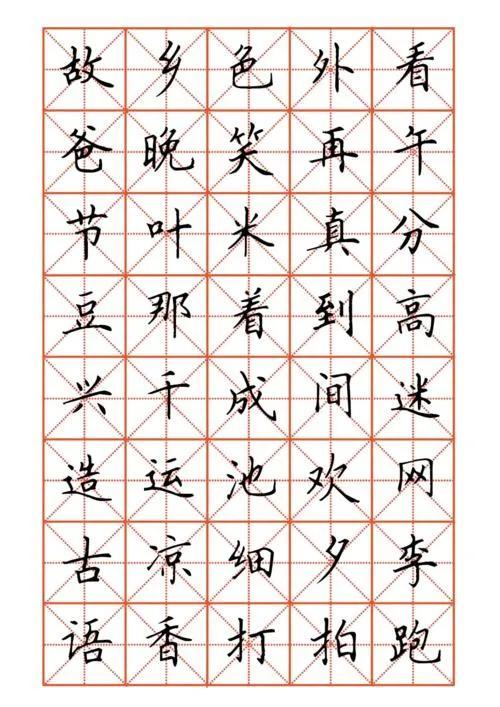 故乡色外看
爸晚笑再午
节叶米真分
豆那着到高
兴千成间迷
造运池欢网
古凉细夕李
语香打拍跑